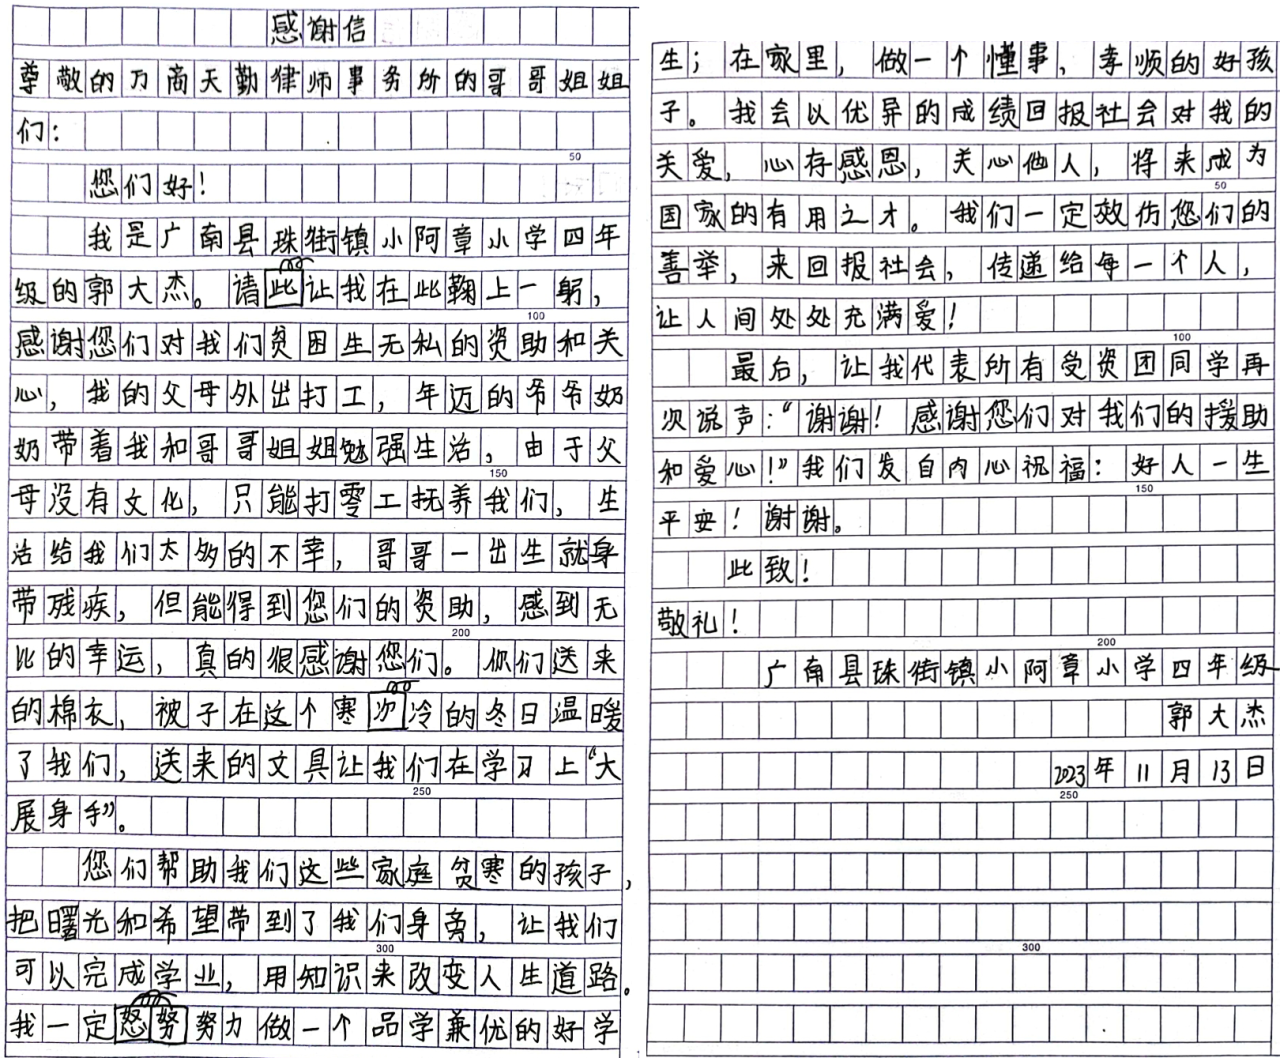 感谢信
尊敬的万商天勤律师事务所的哥哥姐姐
们：
50
您们好！
我是广南县珠街镇小阿章小学四年
级的郭大杰。请此让我在此鞠上一躬，
100
感谢您们对我们贫困生无私的资助和关
心，我的父母外出打工，年迈的爷爷奶
奶带着我和哥哥姐姐勉强生活，由于父
150
母没有文化，只能打零工抚养我们，生
活给我们太多的不幸，哥哥一出生就身
带残疾，但能得到您们的资助，感到无
200
比的幸运，真的很感谢您们。你们送来
的棉衣，被子在这个寒冷的冬日温暖
了我们，送来的文具让我们在学习上“大
250
展身手”。
您们帮助我们这些家庭贫寒的孩子，
把曙光和希望带到了我们身旁，让我们
300
可以完成学业，用知识来改变人生道路。
我一定怒努努力做一个品学兼优的好学
生；在家里，做一个懂事、孝顺的好孩
子。我会以优异的成绩回报社会对我的
关爱，心存感恩，关心他人，将来成为
50
国家的有用之才。我们一定效仿您们的
善举，来回报社会，传递给每一个人，
让人间处处充满爱！
100
最后，让我代表所有受资团同学再
次说声：“谢谢！感谢您们对我们的援助
和爱心！”我们发自内心祝福：好人一生
150
平安！谢谢。
此致！
敬礼！
200
广南县珠街镇小阿章小学四年级
郭大杰
2023年11月13日
250
300